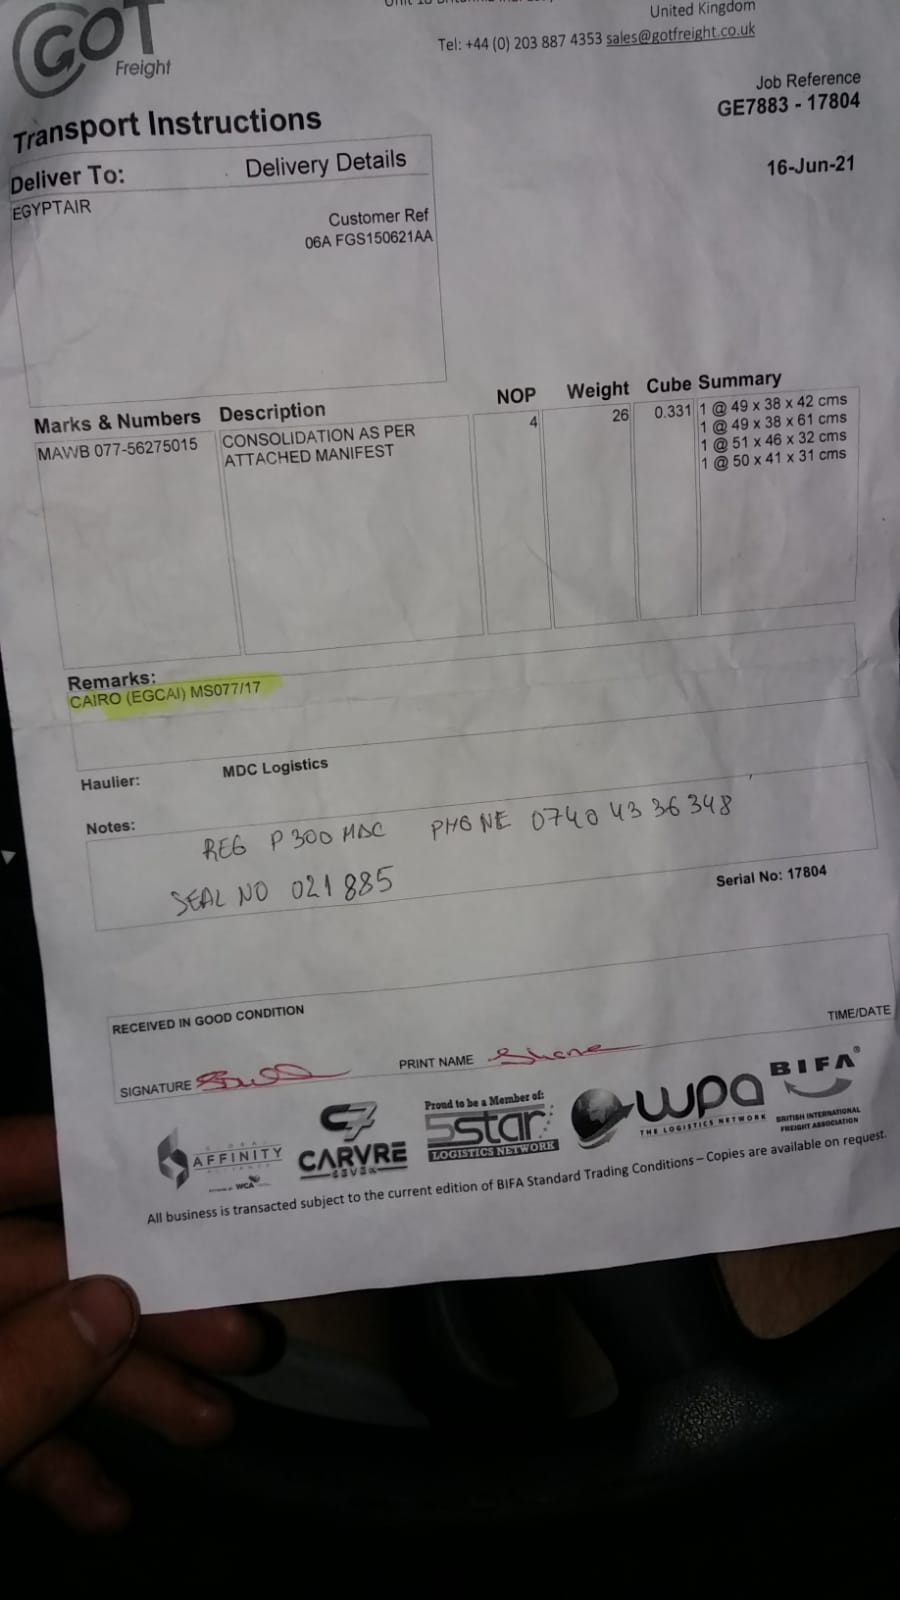 GOT
Freight
United Kingdom
Tel: +44 (0) 203 887 4353 sales@gotfreight.co.uk
Job Reference
GE7883 - 17804
Transport Instructions
16-Jun-21
Deliver To: Delivery Details
EGYPTAIR
Customer Ref
06A FGS150621AA
Marks & Numbers Description NOP Weight Cube Summary
MAWB 077-56275015 CONSOLIDATION AS PER 4 26 0.331 1 @ 49 x 38 x 42 cms
ATTACHED MANIFEST 1 @ 49 x 38 x 61 cms
1 @ 51 x 46 x 32 cms
1 @ 50 x 41 x 31 cms
Remarks:
CAIRO (EGCAI) MS077/17
Haulier: MDC Logistics
Notes:
REG P300 MDC PHONE 0740 43 36 348
SEAL NO 021885
Serial No: 17804
RECEIVED IN GOOD CONDITION
TIME/DATE
SIGNATURE PRINT NAME Shane
GLOBAL AFFINITY ALLIANCE
WCA
C7
CARVRE
SEVEN
Proud to be a Member of:
5star
LOGISTICS NETWORK
wpa
THE LOGISTICS NETWORK
BIFA®
BRITISH INTERNATIONAL
FREIGHT ASSOCIATION
All business is transacted subject to the current edition of BIFA Standard Trading Conditions – Copies are available on request.